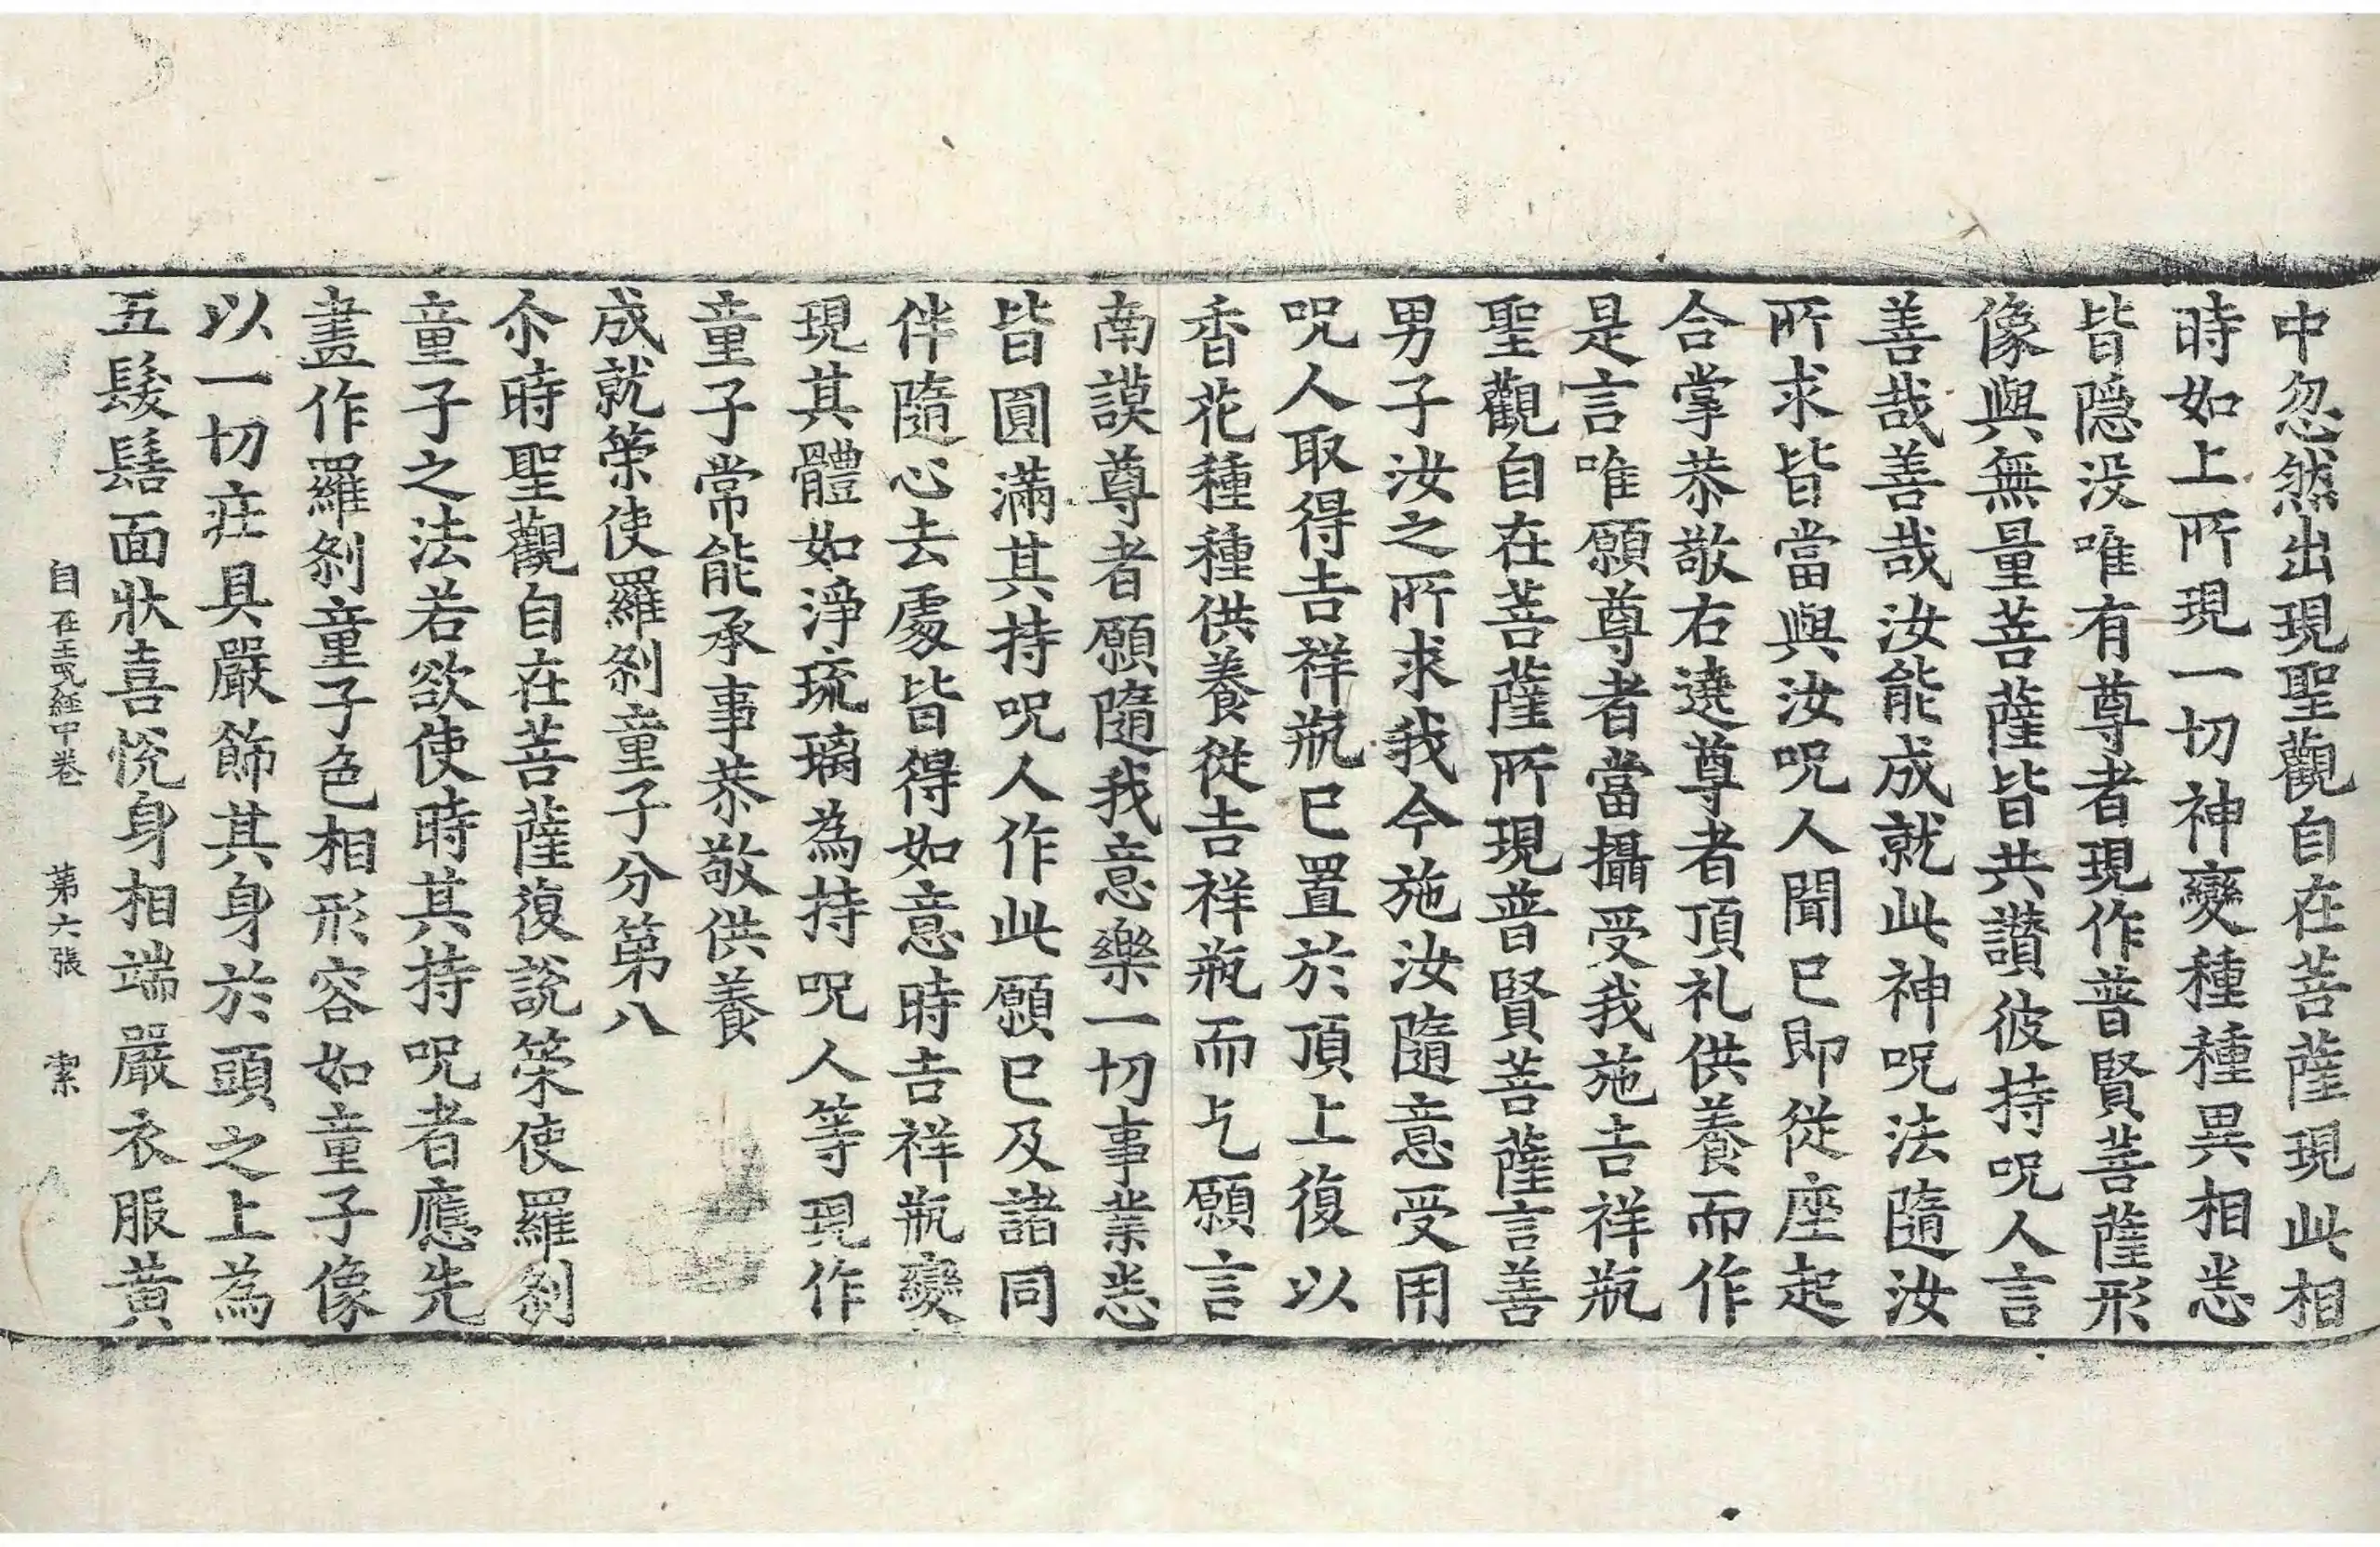 中忽然出現聖觀自在菩薩現此相
時如上所現一切神變種種異相悉
皆隱没唯有尊者現作普賢菩薩形
像與無量菩薩皆共讃彼持呪人言
善哉善哉汝能成就此神呪法隨汝
所求皆當與汝呪人聞已即從座起
合掌恭敬右遶尊者頂礼供養而作
是言唯願尊者當攝受我施吉祥瓶
聖觀自在菩薩所現普賢菩薩言善
男子汝之所求我今施汝隨意受用
呪人取得吉祥瓶已置於頂上復以
香花種種供養從吉祥瓶而乞願言
南謨尊者願隨我意樂一切事業悉
皆圓滿其持呪人作此願已及諸同
伴隨心去處皆得如意時吉祥瓶變
現其體如淨琉璃為持呪人等現作
童子常能承事恭敬供養
成就䇿使羅剎童子分第八
尒時聖觀自在菩薩復說䇿使羅剎
童子之法若欲使時其持呪者應先
畫作羅剎童子色相形容如童子像
以一切莊具嚴飾其身於頭之上為
五髮髻面狀喜悅身相端嚴衣服黃
自在王呪經中卷 第六張 潔